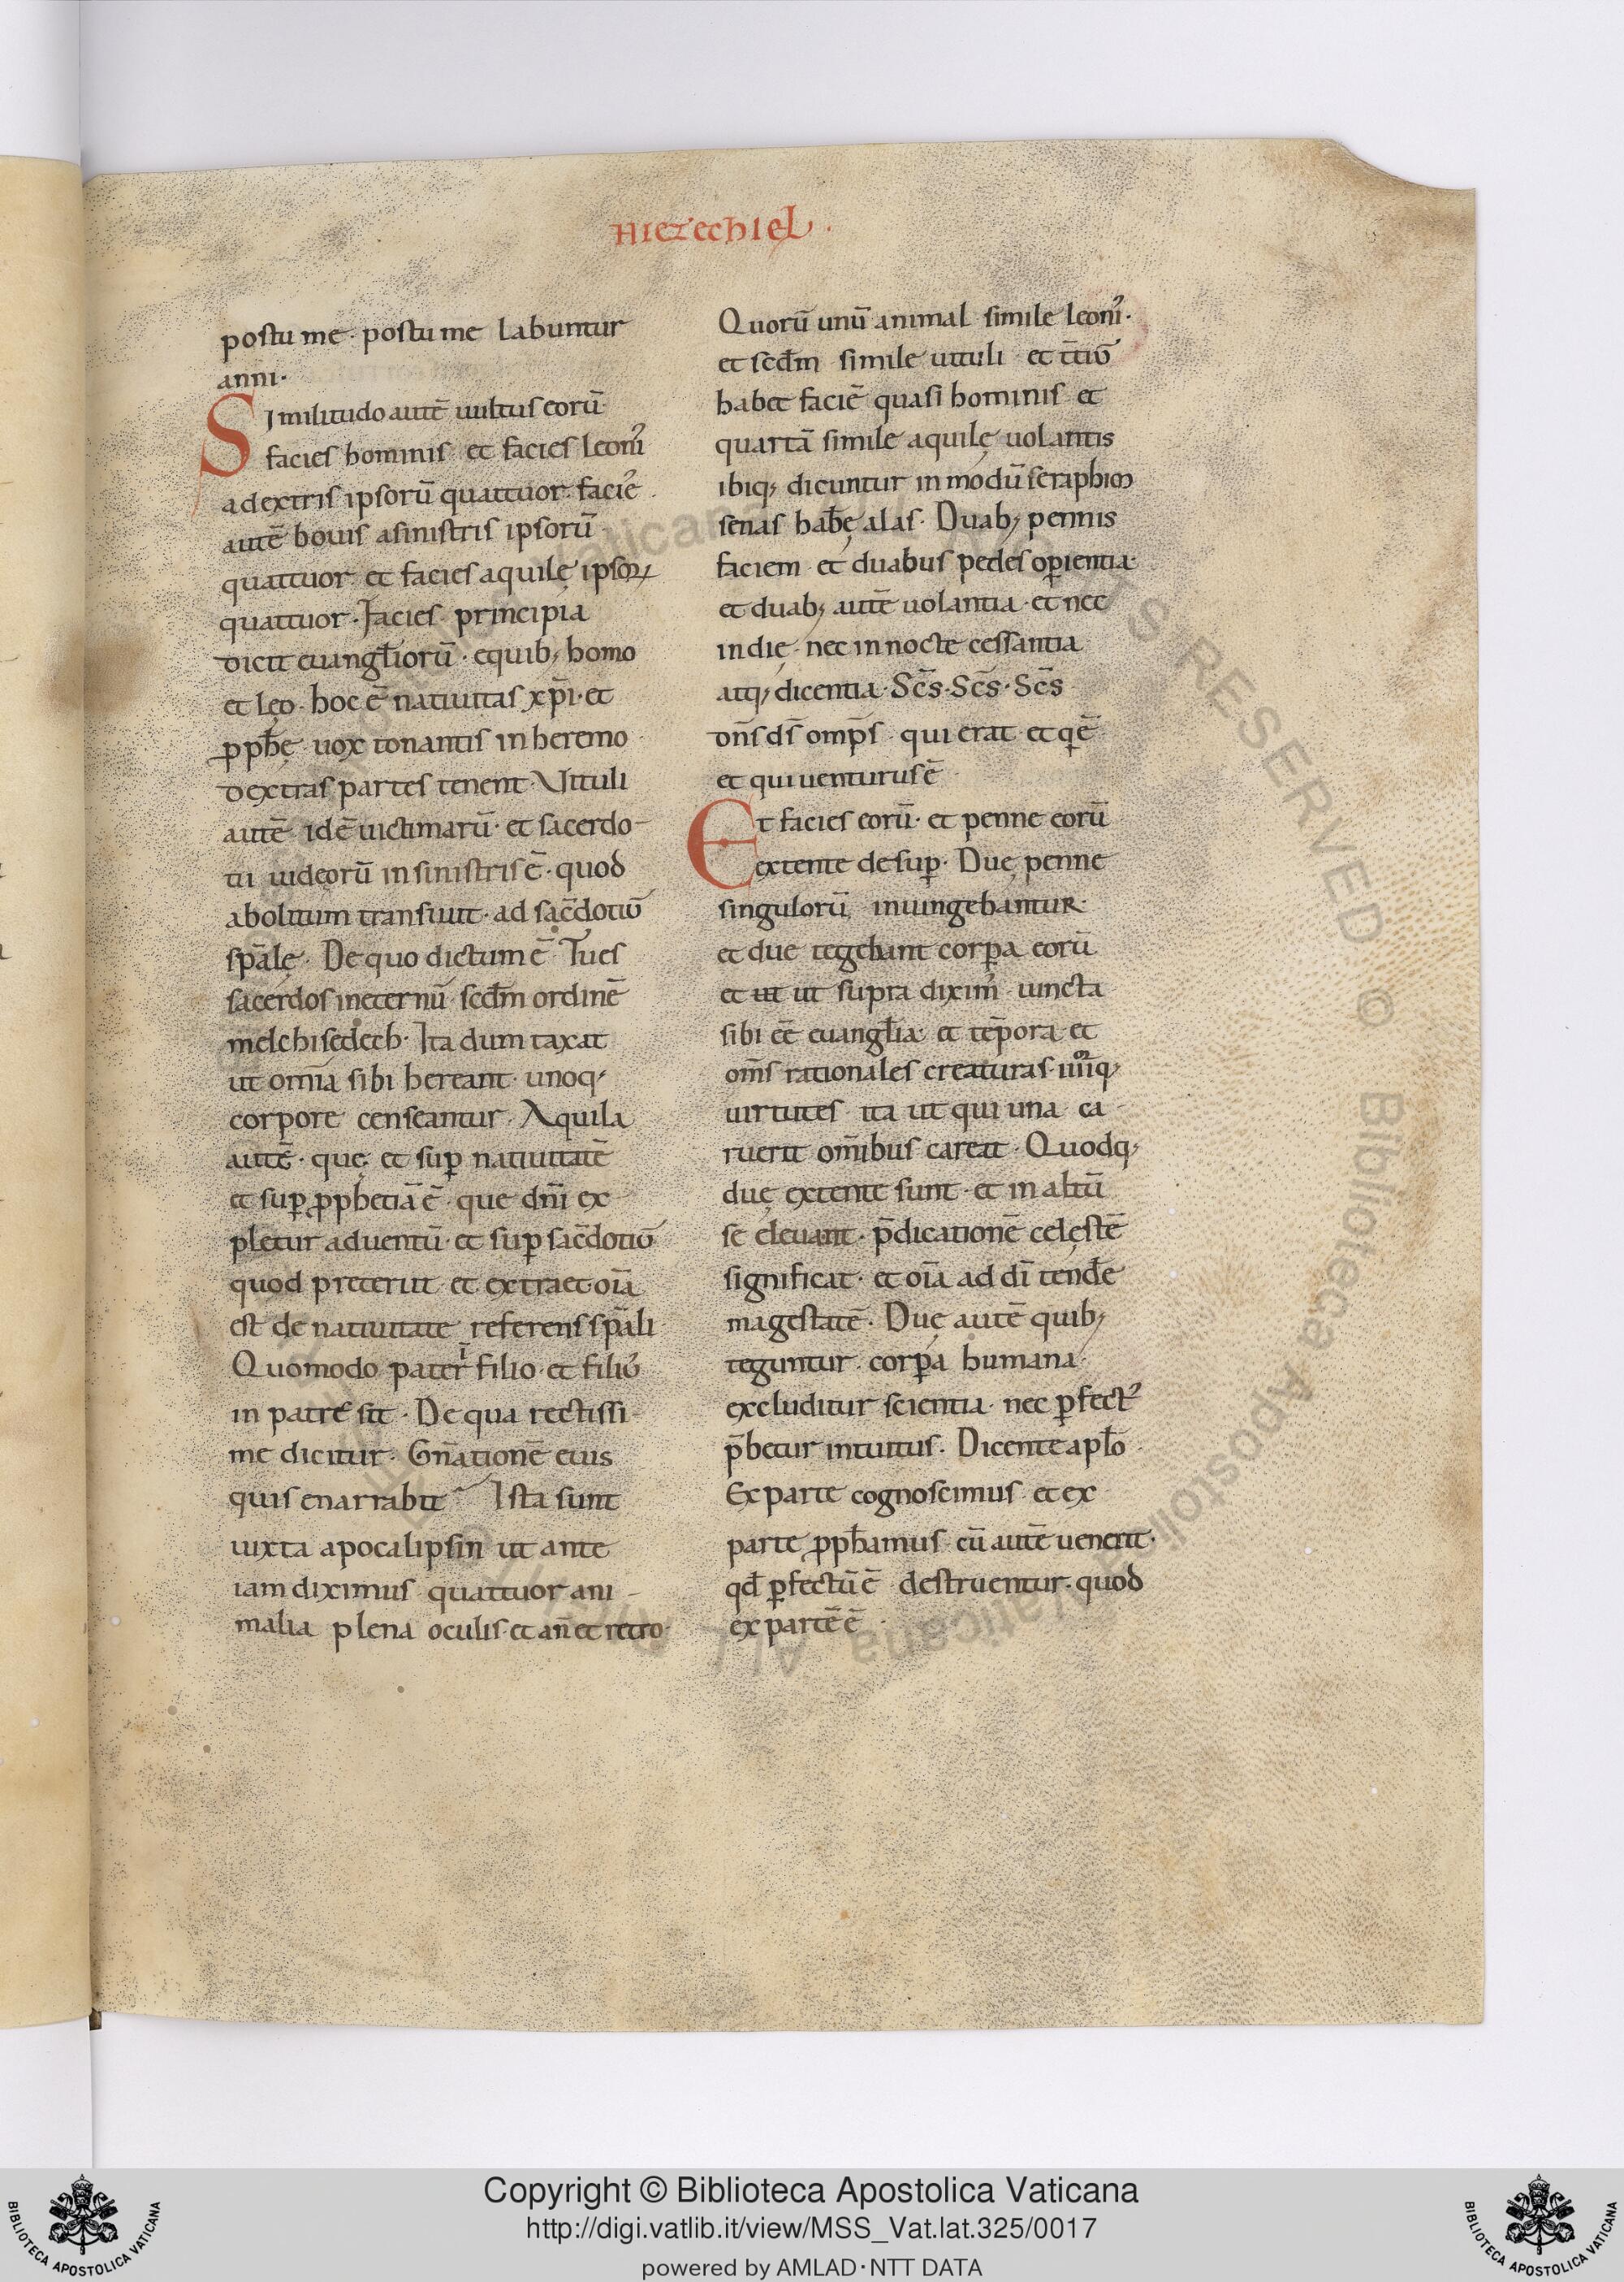 HIEZECHIEL.
postu me· postu me labuntur
anni·
Similitudo autē uultus eorū
facies hominis· et facies leonis
adextris ipsorū quattuor· facies
autē bouis asinistris ipsorū
quattuor· et facies aquilę ipsoꝝ
quattuor· Facies principia
dicit euangl̄iorū· equib; homo
et lęo· hoc ē natiuitas xp̄i· et
ꝓph̄ę uox tonantis in heremo
dextras partes tenent· Vituli
autē idē uictimarū· et sacerdo-
tii iudęorū in sinistris ē· quod
abolitum transiuit· ad sac̄dotiū
sp̄ale· De quo dictum ē· Tu es
sacerdos ineternū· scd̄m ordinē
melchisedech· Ita dum taxat
ut om̄ia sibi hereant· unoq;
corpore censeantur· Aquila
autē· quę et suꝑ natiuitatē
et suꝑ ꝓphetiā ē· que dn̄i ex
pletur aduentū· et suꝑ sac̄dotiū
quod preteriit· et extra et oīa
est de natiuitate referens sp̄ali
Quomodo pater ī filio· et filius
in patre sit· De qua rectissi-
me dicitur· Gn̄ationē eius
quis enarrabit Ista sunt
iuxta apocalipsin ut ante
iam diximus quattuor ani-
malia plena oculis· et an̄ et retro·
Quorū unū animal simile leoni·
et scd̄m simile uituli et t̄tiū
habet faciē quasi hominis et
quartā simile aquilę uolantis
ibiq; dicuntur in modū seraphim
senas hab̄ę alas· Duab; pennis
faciem et duabus pedes oꝑientia·
et duab; autē uolantia· et nec
in dię· nec in nocte cessantia
atq; dicentia· Sc̄s· Sc̄s· Sc̄s
dn̄s ds̄ omp̄s· qui erat· et q ē
et qui uenturus ē
Et facies eorū· et penne eorū
extente desuꝑ· Duę penne
singulorū iniungebantur·
et due tegebant corꝑa eorū
et ut ut supra diximꝰ iuncta
sibi eē euangl̄ia· et tēpora et
om̄s rationales creaturas
uirtutes ita ut qui una ca
ruerit om̄ibus careat· Quodq;
duę extente sunt· et in altū
se eleuant· p̄dicationē celęstē
significat· et oīa ad dī tende
magestatē· Duę autē quib;
teguntur· corꝑa humana·
excluditur scientia· nec ꝑfectꝰ
p̄betur intuitus· Dicente apl̄o
Ex parte cognoscimus et ex
parte ꝓph̄amus cū autē uenerit·
qd̄ ꝑfectū ē destruentur· quod
ex parte ē·
Vaticana ALL RIGHTS RESERVED © Biblioteca Apostolica Vaticana ALL
Copyright © Biblioteca Apostolica Vaticana
http://digi.vatlib.it/view/MSS_Vat.lat.325/0017
powered by AMLAD·NTT DATA
BIBLIOTECA APOSTOLICA VATICANA
BIBLIOTECA APOSTOLICA VATICANA